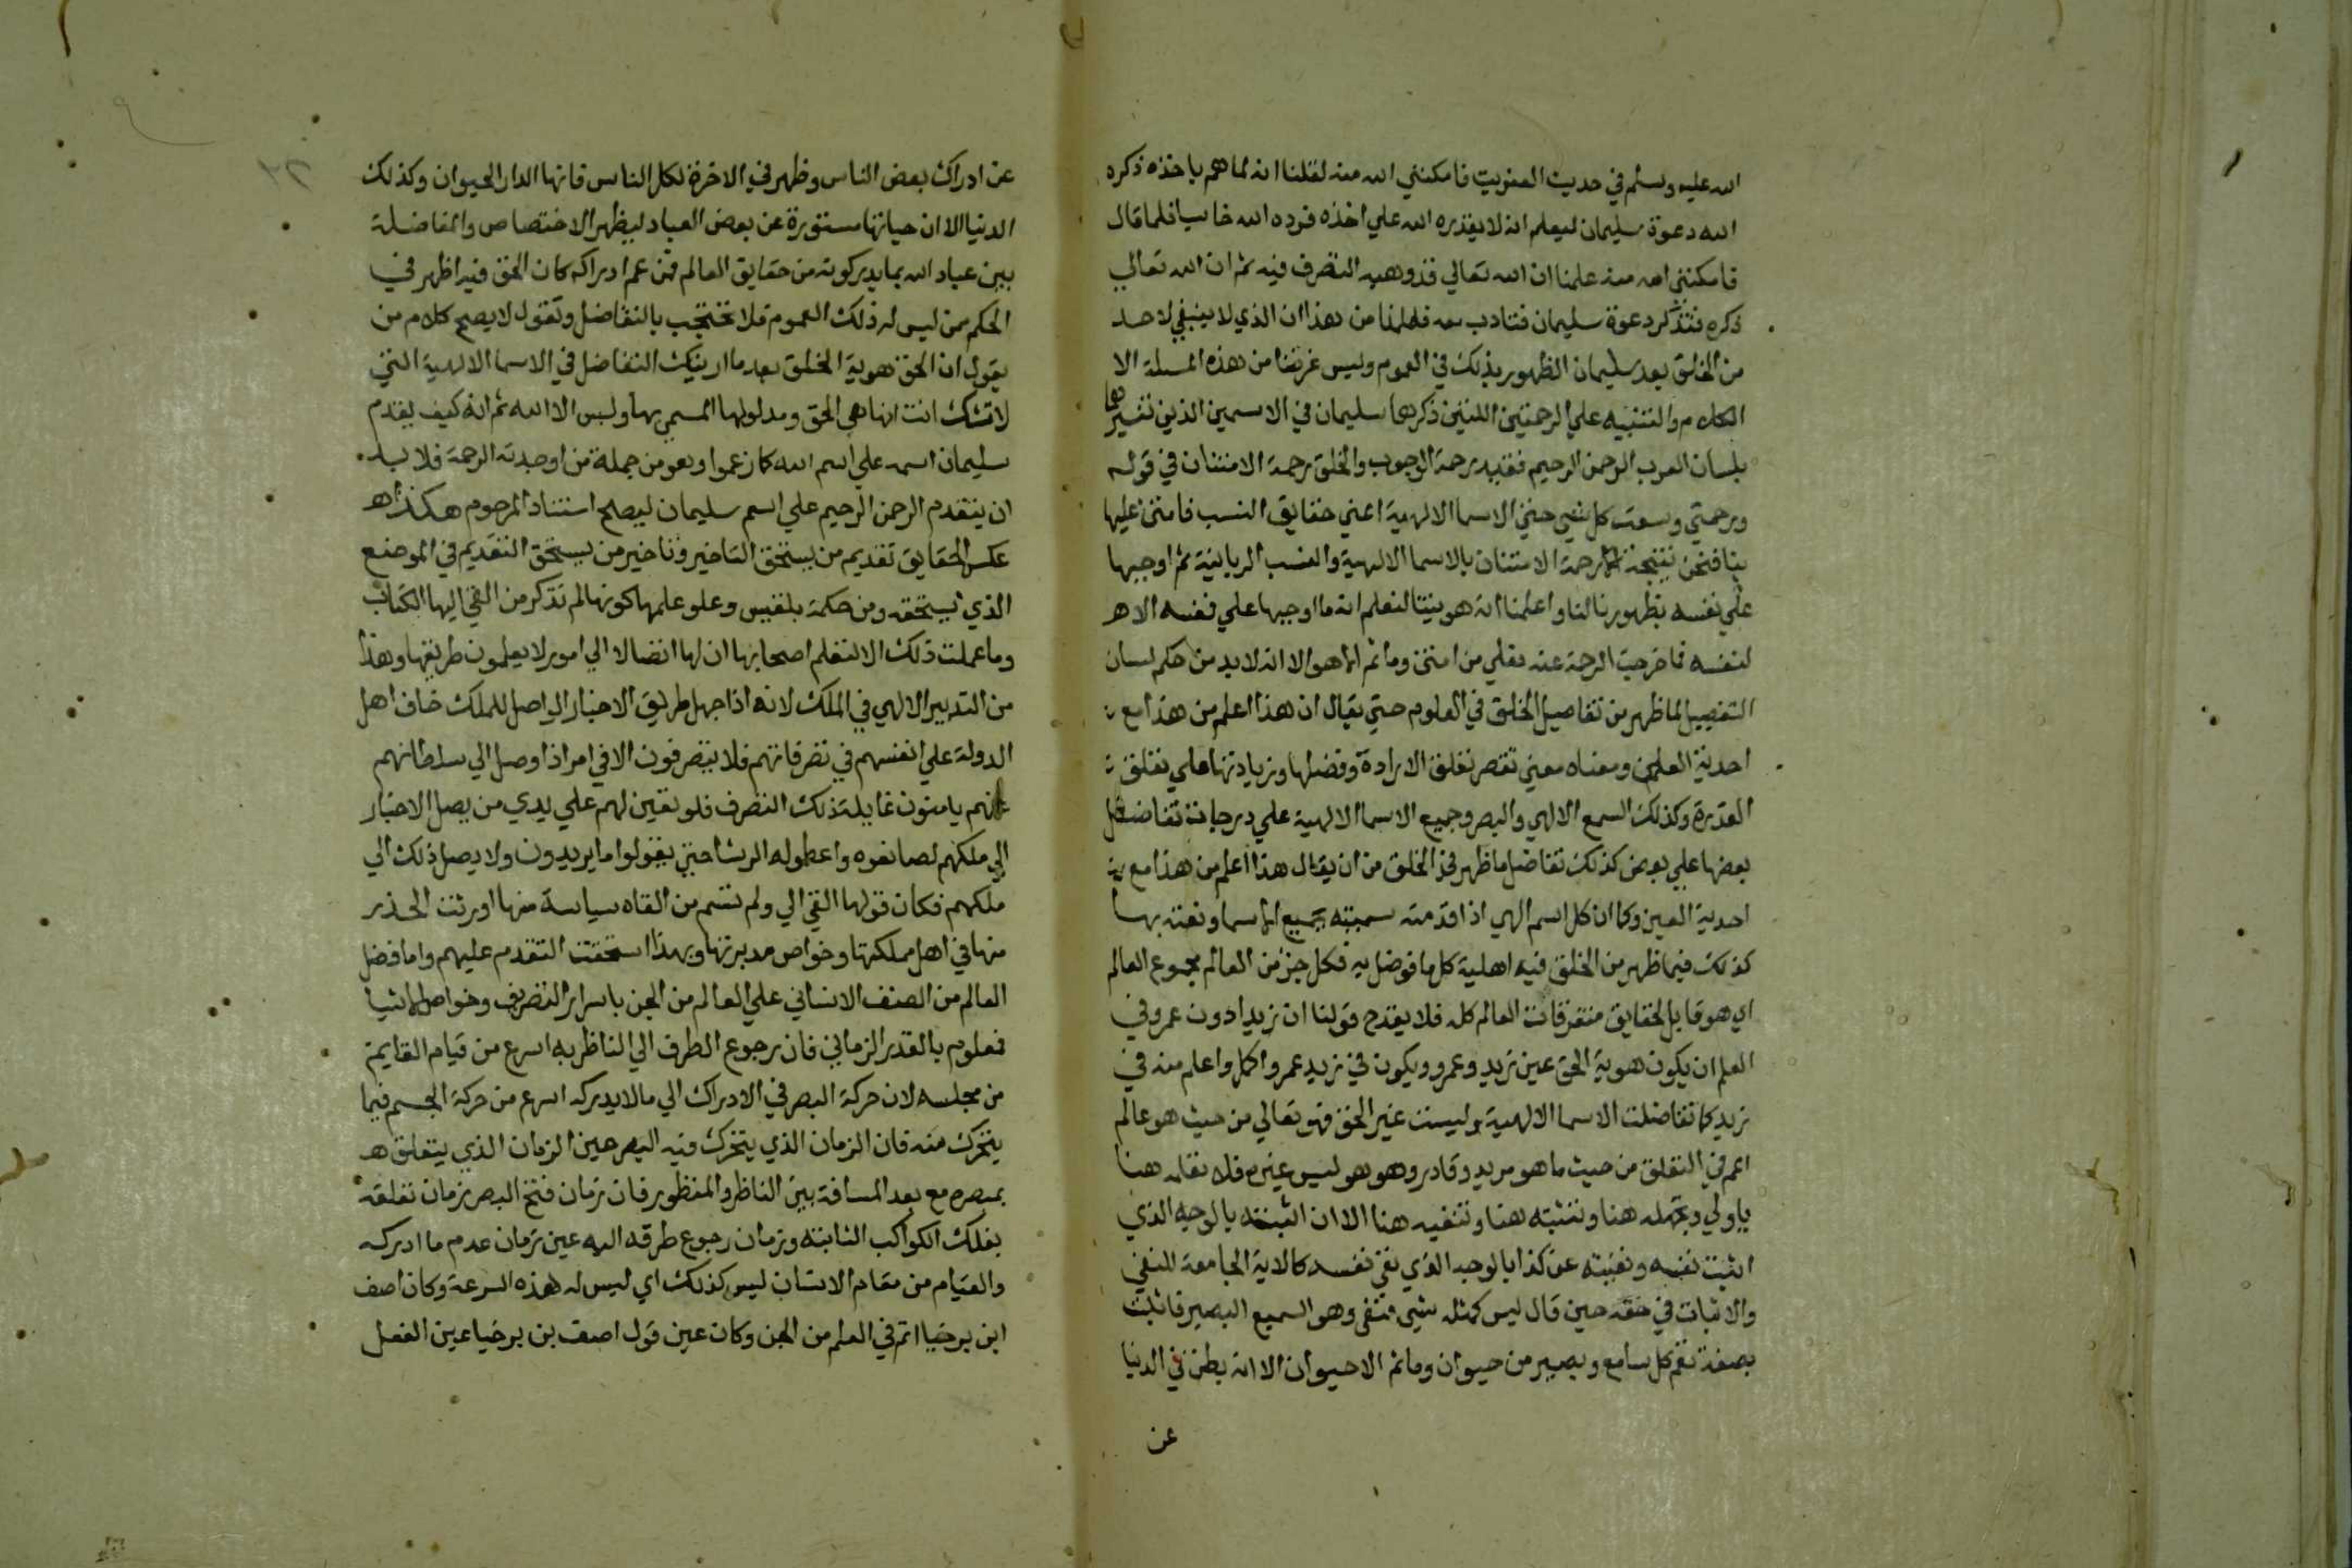 الله عليه وسلم في حديث العفريت فامكنني الله منه لقلنا انه لما هم باخذه ذكره
الله دعوة سليمان ليعلم انه لا يقدره الله علي اخذه فرده الله خاسيا فلما قال
فامكنني الله منه علمنا ان الله تعالي قد وهبه التصرف فيه ثم ان الله تعالي
ذكره فتذكر دعوة سليمان فتادب معه فعلمنا من هذا ان الذي لا ينبغي لاحد
من الخلق بعد سليمان الظهور بذلك في العموم وليس غرضنا من هذه المسلة الا
الكلام والتنبيه علي الرحمتين اللتين ذكرهما سليمان في الاسمين الذين تفسيرهما
بلسان العرب الرحمن الرحيم فقيد رحمة الوجوب واطلق رحمة الامتنان في قوله
ورحمتي وسعت كل شي حتي الاسما الالهية اعني حقايق النسب فامتن عليها
بنا فنحن نتيجة رحمة الامتنان بالاسما الالهية والنسب الربانية ثم اوجبها
علي نفسه بظهورنا لنا واعلمنا انه هويتنا لنعلم انه ما اوجبها علي نفسه الا
لنفسه فما خرجت الرحمة عنه فعلي من امتن وما ثم الا هو الا انه لا بد من حكم لسان
التفصيل لما ظهر من تفاصيل الخلق في العلوم حتي يقال ان هذا اعلم من هذا مع
احدية العين ومعناه معني نقص تعلق الارادة وفضلها وزيادتها علي تعلق
القدرة وكذلك السمع الالهي والبصر وجميع الاسما الالهية علي درجات في تفاضل
بعضها علي بعض كذلك تفاضل ما ظهر في الخلق من ان يقال هذا اعلم من هذا مع
احدية العين وكما ان كل اسم الهي اذا قدمته سميته بجميع الاسما ونعته بها
كذلك فيما ظهر من الخلق فيه اهلية كل ما فوضل به فكل جز من العالم مجموع العالم
اي هو قابل لحقايق متفرقات العالم كله فلا يقدح قولنا ان زيدا دون عمرو في
العلم ان يكون هوية الحق عين زيد وعمرو ويكون في زيد عمرو اكمل واعلم منه في
زيد كما تفاضلت الاسما الالهية وليست غير الحق فهو تعالي من حيث هو عالم
اعم في التعلق من حيث ما هو مريد وقادر وهو هو ليس غيره فلا تعلمه هنا
يا ولي وتجهله هنا وتثبته هنا وتنفيه هنا الا ان اثبته بالوجه الذي
اثبت نفسه ونفيته عن كذا بالوجه الذي نفي نفسه كالاية الجامعة للنفي
والاثبات في حقه حين قال ليس كمثله شي فنفي وهو السميع البصير فاثبت
بصفة تعم كل سامع وبصير من حيوان وما ثم الا حيوان الا انه بطن في الدنيا
عن
عن ادراك بعض الناس وظهر في الاخرة لكل الناس فانها الدار الحيوان وكذلك
الدنيا الا ان حياتها مستورة عن بعض العباد ليظهر الاختصاص والمفاضلة
بين عباد الله بما يدركونه من حقايق العالم فمن عم ادراكه كان الحق فيه اظهر في
الحكم ممن ليس له ذلك العموم فلا تحتجب بالتفاضل وتقول لا يصح كلام من
يقول ان الحق هوية الخلق بعد ما اريتك التفاضل في الاسما الالهية التي
لا تشك انت انها هي الحق ومدلولها المسمي بها وليس الا الله ثم انه كيف يقدم
سليمان اسمه علي اسم الله كما زعموا وهو من جملة من اوجدته الرحمة فلا بد
ان يتقدم الرحمن الرحيم علي اسم سليمان ليصح استناد المرحوم هذا
عكس الحقايق تقديم من يستحق التاخير وتاخير من يستحق التقديم في الموضع
الذي يستحقه ومن حكمة بلقيس وعلو علمها كونها لم تذكر من القي اليها الكتاب
وما عملت ذلك الا لتعلم اصحابها ان لها اتصالا الي امور لا يعلمون طريقها وهذا
من التدبير الالهي في الملك لانه اذا جهل طريق الاخبار الواصل للملك خاف اهل
الدولة علي انفسهم في تصرفاتهم فلا يتصرفون الا في امر اذا وصل الي سلطانهم
عنهم يامنون غايلة ذلك التصرف فلو تعين لهم علي يدي من يصل الاخبار
الي ملكهم لصانعوه واعظموا له الرشا حتي يفعلوا ما يريدون ولا يصل ذلك الي
ملكهم فكان قولها القي الي ولم تسم من القاه سياسة منها اورثت الحذر
منها في اهل مملكتها وخواص مدبريها وبهذا استحقت التقدم عليهم واما فضل
العالم من الصنف الانساني علي العالم من الجن باسرار التصريف وخواص الاشيا
فمعلوم بالقدر الزماني فان رجوع الطرف الي الناظر به اسرع من قيام القايم
من مجلسه لان حركة البصر في الادراك الي ما لا يدركه اسرع من حركة الجسم فيما
يتحرك منه فان الزمان الذي يتحرك فيه البصر عين الزمان الذي يتعلق
بمبصره مع بعد المسافة بين الناظر والمنظور فان زمان فتح البصر زمان تعلقه
بفلك الكواكب الثابتة وزمان رجوع طرفه اليه عين زمان عدم ما ادركه
والقيام من مقام الانسان ليس كذلك اي ليس له هذه السرعة وكان اصف
ابن برخيا اتم في العلم من الجن وكان عين قول اصف بن برخيا عين الفعل